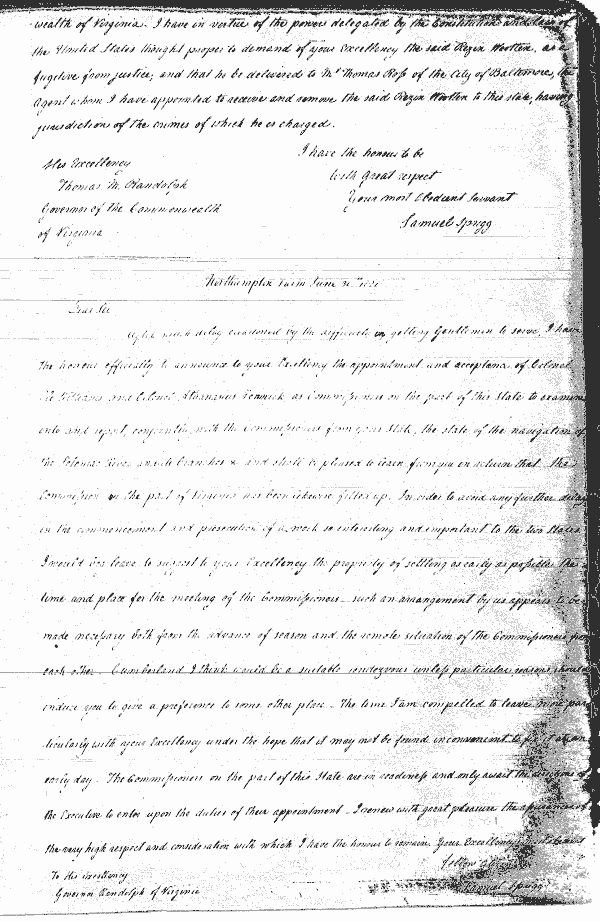 wealth of Virginia. I have in virtue of the powers delegated by the Constitution and laws of
the United States thought proper to demand of your Excellency the said Rezin Wootten, as a
fugitive from justice; and that he be delivered to Mr Thomas Ross of the City of Baltimore, the
Agent whom I have appointed to receive and remove the said Rezin Wootten to this state, having
jurisdiction of the crimes of which he is charged.
I have the honour to be
His Excellency
with great respect
Thomas M. Randolph
Your most Obedient Servant
Governor of the Commonwealth
Samuel Sprigg
of Virginia
Northampton June
Dear Sir
After much delay occasioned by the difficulty in getting Gentlemen to serve, I have
the honour officially to announce to your Excellency the appointment and acceptance of Colonel
Williams and Colonel Athanasius Fenwick as Commissioners on the part of this State to examine
into and report, conjointly with the Commissioners from your State, the state of the navigation of
the Potomac River and its branches & and shall be pleased to learn from you in return that the
Commission on the part of Virginia has been likewise filled up. In order to avoid any further delay
in the commencement and prosecution of a work so interesting and important to the two States
I would beg leave to suggest to your Excellency the propriety of settling as early as possible the
time and place for the meeting of the Commissioners - such an arrangement by us appears to be
made necessary both from the advance of season and the remote situation of the Commissioners from
each other - Cumberland I think would be a suitable rendezvous unless particular reasons should
induce you to give a preference to some other place - The time I am compelled to leave more par
ticularly with your Excellency under the hope that it may not be found inconvenient to fix it at an
early day - The Commissioners on the part of this State are in readiness and only await the directions of
the Executive to enter upon the duties of their appointment - I renew with great pleasure the assurances of
the very high respect and consideration with which I have the honour to remain Your Excellency's
fellow
To His Excellency
Samuel Sprigg
Governor Randolph of Virginia